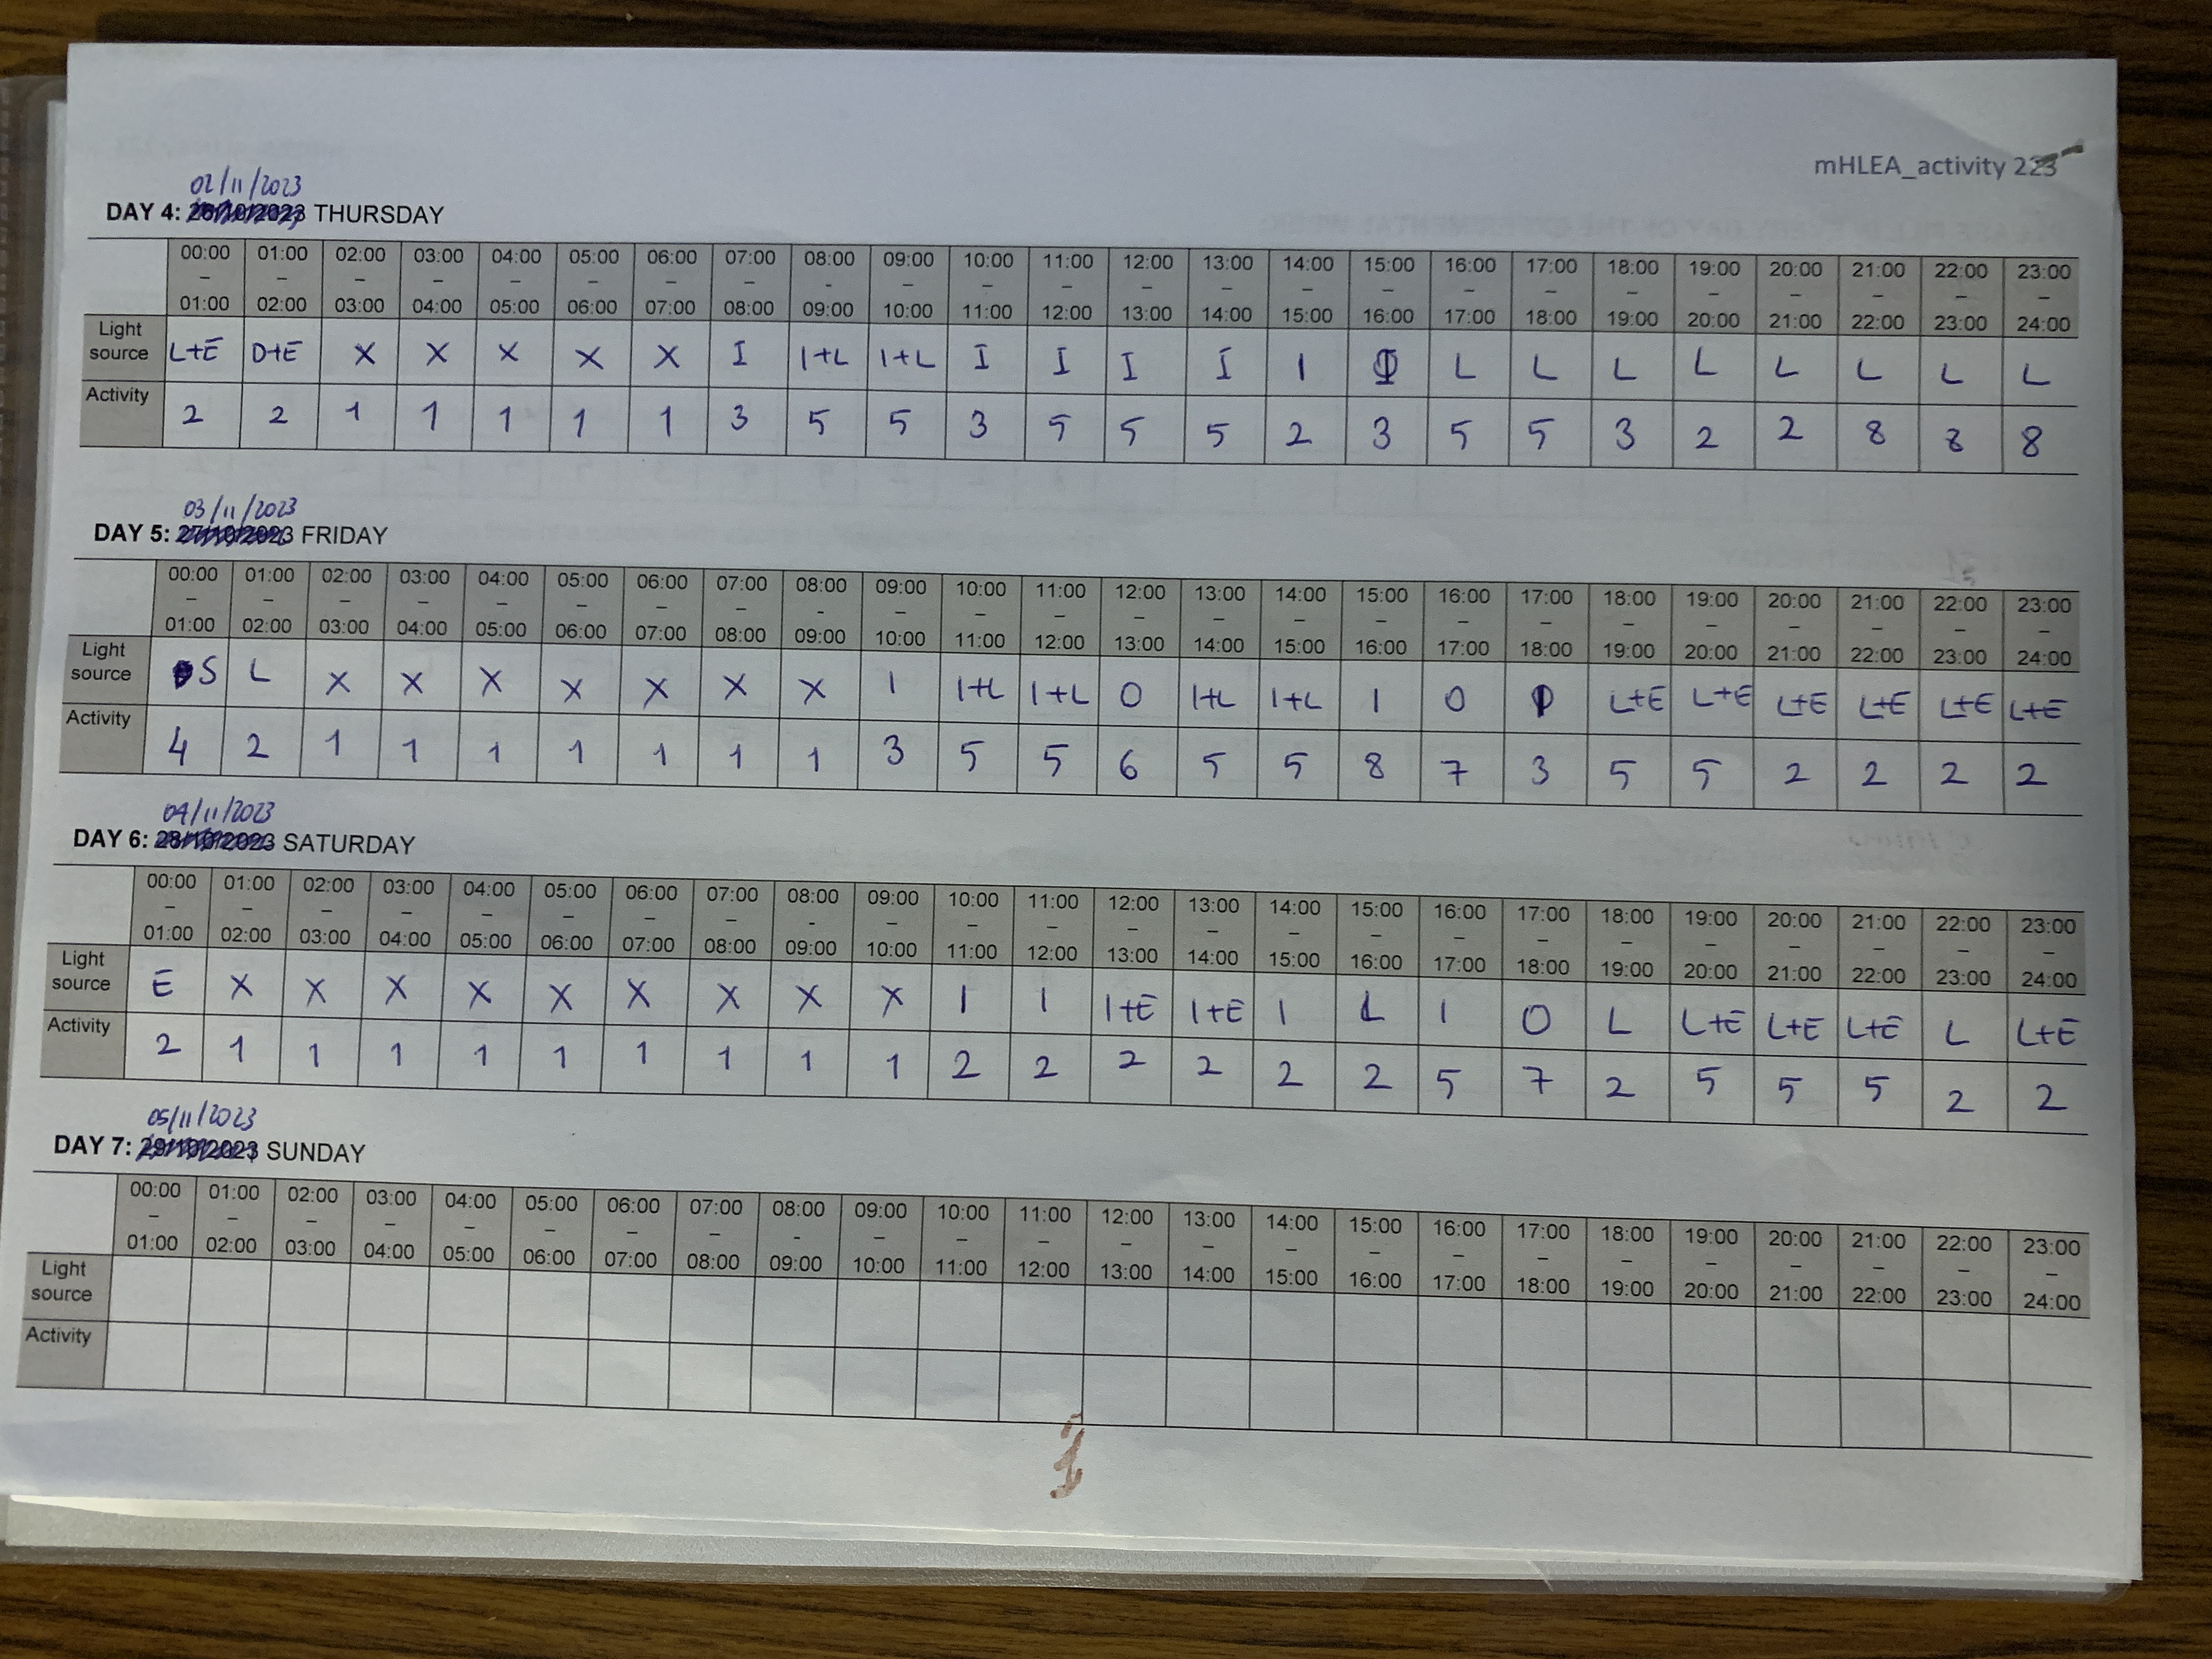 mHLEA_activity 223
02/11/2023
DAY 4: THURSDAY
00:00 – 01:00 01:00 – 02:00 02:00 – 03:00 03:00 – 04:00 04:00 – 05:00 05:00 – 06:00 06:00 – 07:00 07:00 – 08:00 08:00 - 09:00 09:00 – 10:00 10:00 – 11:00 11:00 – 12:00 12:00 – 13:00 13:00 – 14:00 14:00 – 15:00 15:00 – 16:00 16:00 – 17:00 17:00 – 18:00 18:00 – 19:00 19:00 – 20:00 20:00 – 21:00 21:00 – 22:00 22:00 – 23:00 23:00 – 24:00
Light source L+E D+E X X X X X I I+L I+L I I I I I L L L L L L L L
Activity 2 2 1 1 1 1 1 3 5 5 3 5 5 5 2 3 5 5 3 2 2 8 8 8
03/11/2023
DAY 5: FRIDAY
00:00 – 01:00 01:00 – 02:00 02:00 – 03:00 03:00 – 04:00 04:00 – 05:00 05:00 – 06:00 06:00 – 07:00 07:00 – 08:00 08:00 - 09:00 09:00 – 10:00 10:00 – 11:00 11:00 – 12:00 12:00 – 13:00 13:00 – 14:00 14:00 – 15:00 15:00 – 16:00 16:00 – 17:00 17:00 – 18:00 18:00 – 19:00 19:00 – 20:00 20:00 – 21:00 21:00 – 22:00 22:00 – 23:00 23:00 – 24:00
Light source S L X X X X X X X I I+L I+L O I+L I+L I O L+E L+E L+E L+E L+E L+E
Activity 4 2 1 1 1 1 1 1 1 3 5 5 6 5 5 8 7 3 5 5 2 2 2 2
04/11/2023
DAY 6: SATURDAY
00:00 – 01:00 01:00 – 02:00 02:00 – 03:00 03:00 – 04:00 04:00 – 05:00 05:00 – 06:00 06:00 – 07:00 07:00 – 08:00 08:00 - 09:00 09:00 – 10:00 10:00 – 11:00 11:00 – 12:00 12:00 – 13:00 13:00 – 14:00 14:00 – 15:00 15:00 – 16:00 16:00 – 17:00 17:00 – 18:00 18:00 – 19:00 19:00 – 20:00 20:00 – 21:00 21:00 – 22:00 22:00 – 23:00 23:00 – 24:00
Light source E X X X X X X X X X I I I+E I+E I L I O L L+E L+E L+E L L+E
Activity 2 1 1 1 1 1 1 1 1 1 2 2 2 2 2 2 5 7 2 5 5 5 2 2
05/11/2023
DAY 7: SUNDAY
00:00 – 01:00 01:00 – 02:00 02:00 – 03:00 03:00 – 04:00 04:00 – 05:00 05:00 – 06:00 06:00 – 07:00 07:00 – 08:00 08:00 - 09:00 09:00 – 10:00 10:00 – 11:00 11:00 – 12:00 12:00 – 13:00 13:00 – 14:00 14:00 – 15:00 15:00 – 16:00 16:00 – 17:00 17:00 – 18:00 18:00 – 19:00 19:00 – 20:00 20:00 – 21:00 21:00 – 22:00 22:00 – 23:00 23:00 – 24:00
Light source
Activity